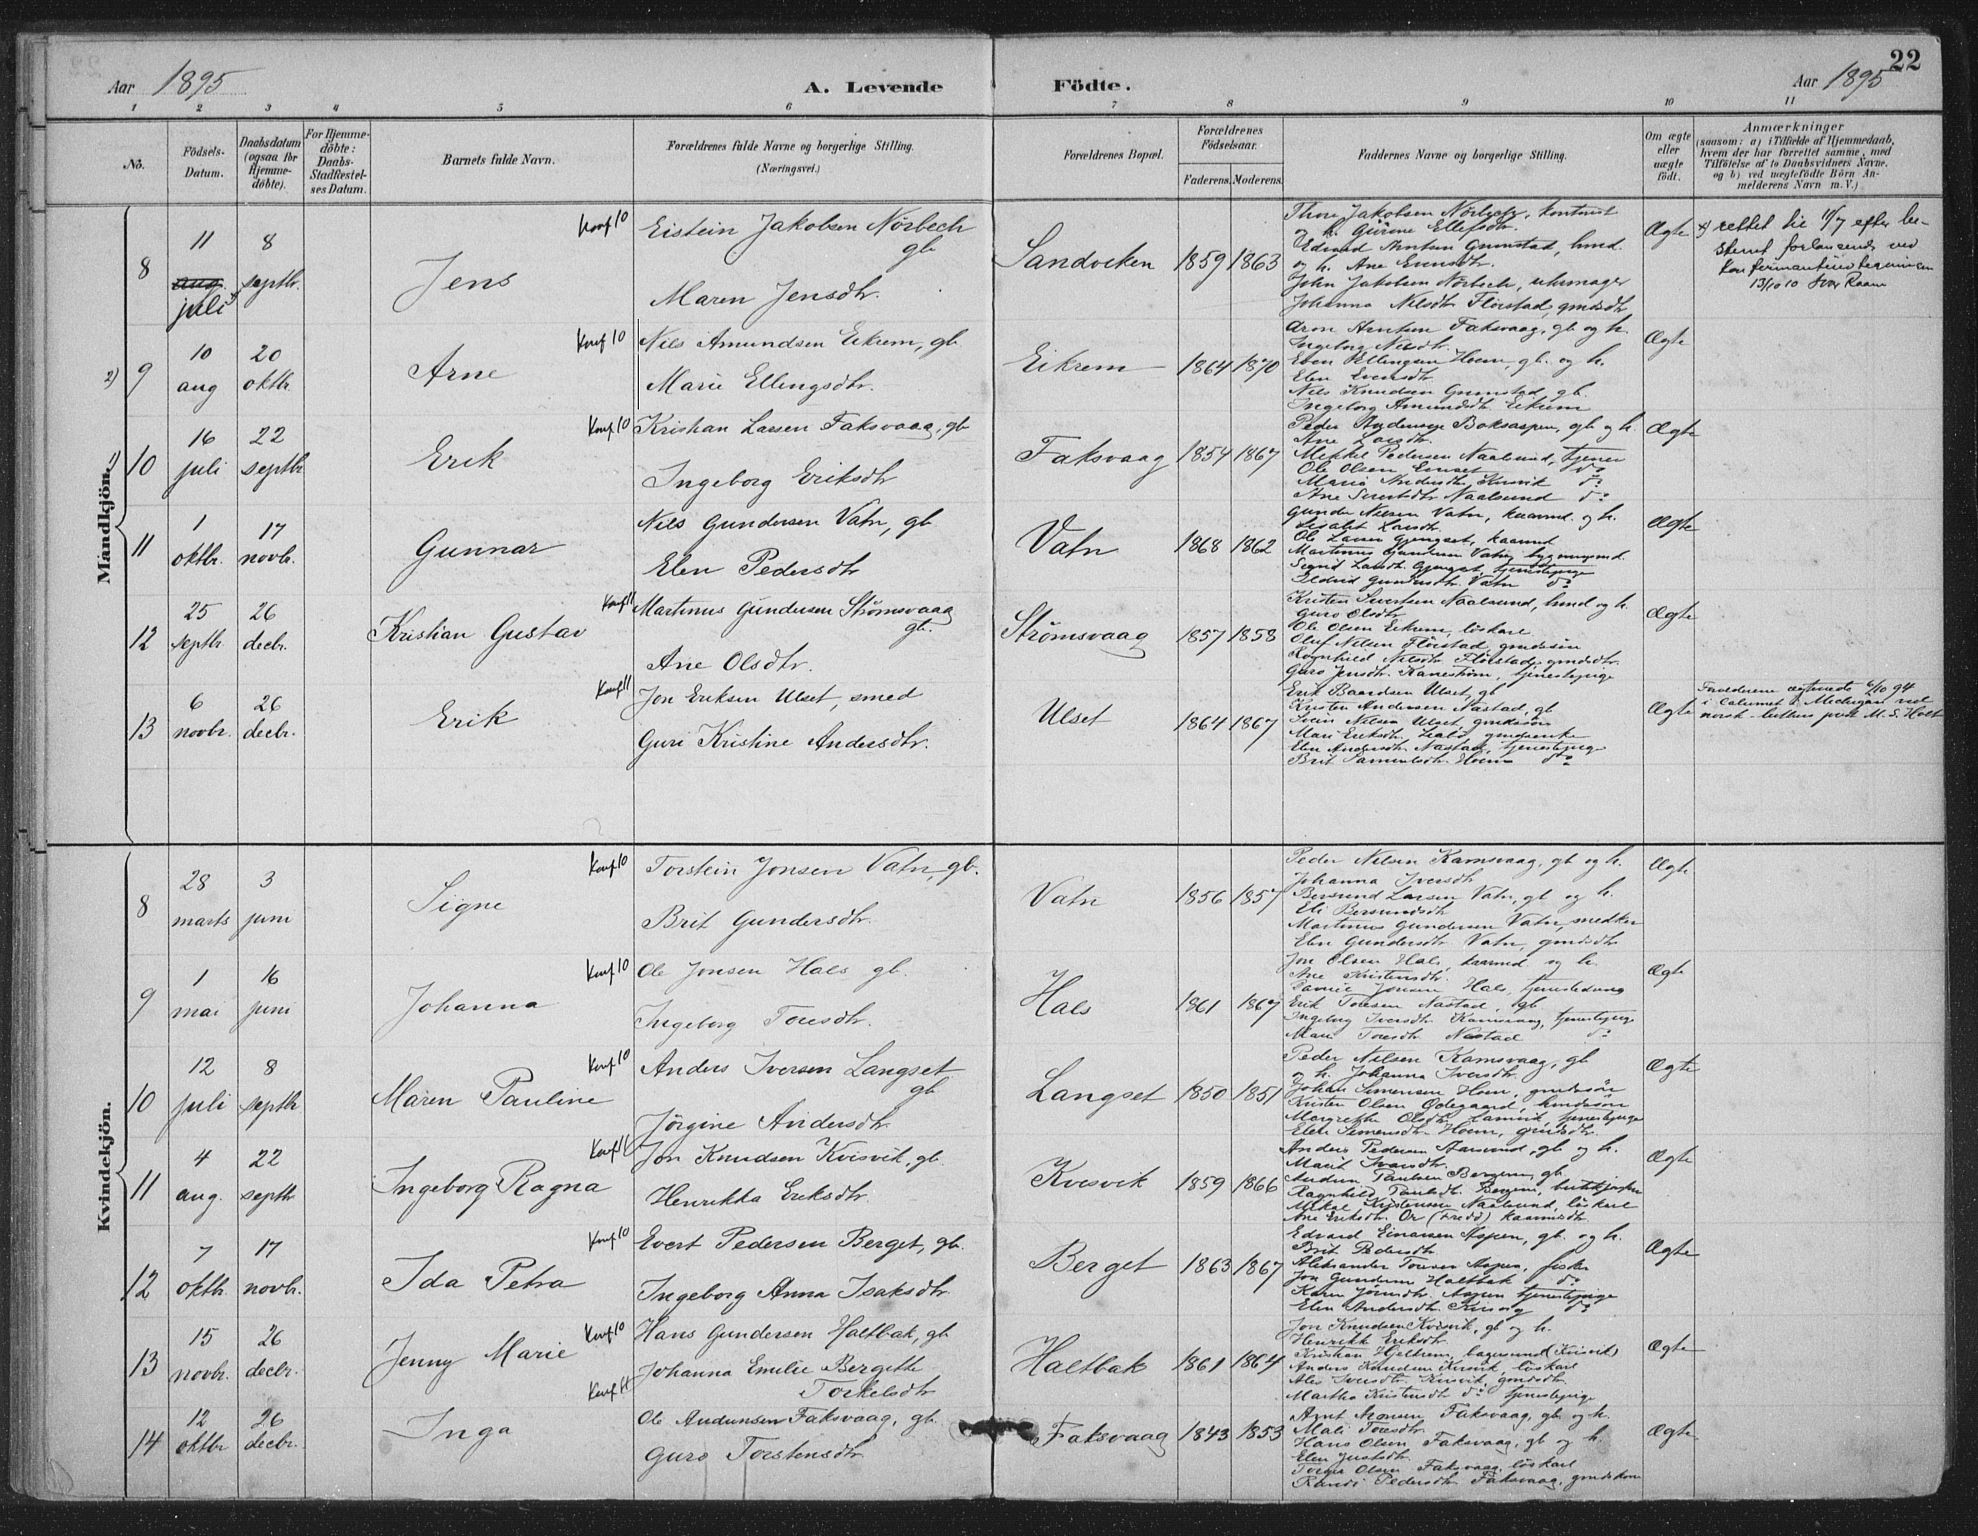 22
Aar 1895
A. Levende
Födte.
Aar 1895
1 2 3 4 5 6 7 8 9 10 11
Nö.
Födsels-Datum.
Daabsdatum (ogsaa för Hjemmedöbte).
For Hjemmedöbte: Daabs-Stadfæstelses Datum.
Barnets fulde Navn.
Forældrenes fulde Navne og borgerlige Stilling.
(Næringsvei.)
Forældrenes Bopæl.
Forældrenes Födselsaar.
Faderens. Moderens.
Faddernes Navne og borgerlige Stilling.
Om ægte eller uægte födt.
Anmærkninger
(saasom: a) i Tilfælde af Hjemmedaab, hvem der har forrettet samme, med Tilföielse af to Daabsvidners Navne, og b) ved uægtefödte Börn Anmelderens Navn m. V.)
Mandkjön.
8
11 aug. juli
8 septbr.
Jens
Konf 10
Eistein Jakobsen Nörbech
gb
Maren Jensdtr.
Sandviken
1859 1863
Thore Jakobsen Nörbech,
og h. Gurine Ellefsdtr.
Edvard Arntsen Grimstad,
og h. Ane Evensdtr.
John Jakobsen Nörbech, uhrmager
Johanna Nilsdtr. Flörstad, gmdsdtr
Ægte
rettet til 11/7 efter be-
13/10 10
2) 9
10 aug
20 oktbr.
Arne
Konf 10
Nils Amundsen Eikrem, gb.
Marie Ellingsdtr.
Eikrem
1864 1870
Aron Arntsen Faksvaag, gb og h.
Ingeborg Nilsdtr.
Even Ellingsen Hoem, gb. og h.
Elen Evensdtr
Nils Knudsen Grimstad gb.
Ingeborg Amundsdtr. Eikrem
Ægte
1) 10
16 juli
22 septbr
Erik
Konf 10
Kristian Larsen Faksvaag, gb
Ingeborg Eriksdtr
Faksvaag
1854 1867
Peder Andersen Boksaspen, gb og h.
Ane Larsdtr.
Mikkel Pedersen Naalsund, tjener
Ole Olsen
Marie Andersdtr. Kvisvik do
Ane Naalsund do
Ægte
11
1 oktbr.
17 novbr.
Gunnar
Nils Gundersen Vatn, gb
Elen Pedersdtr
Vatn
1868 1862
Gunder Nilsen Vatn, kaarmd. og h.
Lisabet Larsdtr.
Ole Larsen Gjengset, kaarmd
Martinus Gundersen Vatn
Sigrid Larsdtr Gjengset, tjenestepige
Gundersdtr. Vatn do
Ægte
12
25 septbr
26 decbr.
Kristian Gustav
Konf 11
Martinus Gundersen Strömsvaag
gb.
Ane Olsdtr.
Strömsvaag
1857 1858
Kristen Sivertsen Naalsund, hmd og h.
Guro Olsdtr
Ole Olsen Eikrem, löskarl
Oluf Nilsen Flörstad, gmdssön
Ragnhild Nilsdtr. Flörstad, gmdsdtr.
Guro Jensdtr. Kaneström, tjenestepige
Ægte
13
6 novbr.
26 decbr.
Erik
Konf 11
Jon Eriksen Ulset, smed
Guri Kristine Andersdtr.
Ulset
1864 1867
Erik Baardsen Ulset, gb
Kristen Andersen Nastad, gb
Svein Nilsen Ulset, gmdssön
Mari Eriksdtr.
Elen Andersdtr. Nastad, tjenestepige
Brit Samuelsdtr. Hoem do
Ægte
Forældrene ægteviede 6/10 94
i Calumet i Michigan ved
norsk-luthersk prest M. S. Holt
Kvindekjön.
8
28 marts
3 juni
Signe
Konf 10
Torstein Jonsen Vatn, gb.
Brit Gundersdtr.
Vatn
1856 1857
Peder Nilsen Kamsvaag, gb og h.
Johanna Iversdtr
Bersvend Larsen Vatn, gb og h.
Eli Bersvendsdtr
Martinus Gundersen Vatn, snedker
Elen Gundersdtr Vatn, gmdsdtr
Ægte
9
1 mai
16 juni
Johanna
Konf 10
Ole Jonsen Hals gb.
Ingeborg Toresdtr.
Hals
1861 1867
Jon Olsen Hals, kaarmd og h.
Ane Kristensdtr.
Jonsen Hals, tjenestedreng
Erik Toresen Nastad, gb
Ingeborg Iversdtr Kamsvaag, tjenestepige
Mari Toresdtr Nastad do
Ægte
10
12 juli
8 septbr
Maren Pauline
Konf 10
Anders Iversen Langset
gb
Jörgine Andersdtr
Langset
1850 1851
Peder Nilsen Kamsvaag, gb
og h. Johanna Iversdtr.
Johan Simensen Hoem, gmdssön
Kristen Olsen Ödegaard, hmdssön
Margrethe Olsdtr. tjenestepige
Elen Simensdtr Hoem, gmdsdtr.
Ægte
11
4 aug.
22 septbr
Ingeborg Ragna
Konf 11
Jon Knudsen Kvisvik, gb.
Henrikka Eriksdtr.
Kvisvik
1859 1866
Anders Pedersen Aarsund, gb og h.
Marit Iversdtr.
Paulsen Bergem, gb.
Ragnhild Paulsdtr. Bergem,
Mikal Kristensen Naalsund, löskarl
Ane Eriksdtr. Ör (Tredö) kaarmdsdtr.
Ægte
12
7 oktbr.
17 novbr.
Ida Petra
Konf 10
Evert Pedersen Berget, gb.
Ingeborg Anna Isaksdtr.
Berget
1863 1867
Edvard Einarsen Aspen, gb. og h.
Brit Pedersdtr
Aleksander Toresen Aspen, fisker
Jon Gundersen Haltbak do
Karen Aspen tjenestepige
Elen Andersdtr Kvisvig do
Ægte
13
15 novbr.
26 decbr.
Jenny Marie
Konf 10
Hans Gundersen Haltbak, gb.
Johanna Emilie Bergitte
Torkelsdtr
Haltbak
1861 1864
Jon Knudsen Kvisvik, gb og h.
Henrikk Eriksdtr.
Kristian Hjelkrem, (Kvisvik)
Anders Knudsen Kvisvik, löskarl
Iversdtr. Kvisvik, gmdsdtr
Martha Kristensdtr do tjenestepige
Ægte
14
12 oktbr
26 decbr.
Inga
Konf 11
Ole Andersen Faksvaag, gb.
Guro Torstensdtr.
Faksvaag
1843 1853
Arnt Aronsen Faksvaag, gb og h.
Mali Toresdtr.
Hans Olsen Faksvaag, gb og h.
Elen
Torger Olsen Faksvaag, löskarl
Randi Pedersdtr Faksvaag, gmdskone
Ægte